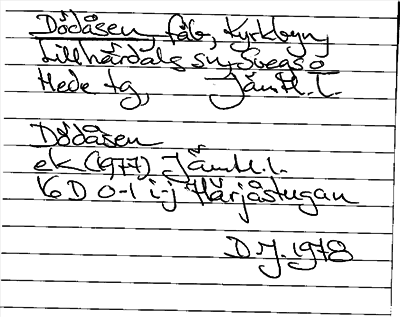 Dödåsen, fäb, Kyrkbyn,
Lillhärdals sn, Svegs o
Hede tg, Jämtl. l.
Dödåsen
ek (1977) Jämtl. l.
16 D 0-1 i-j Härjåstugan
D.J. 1978